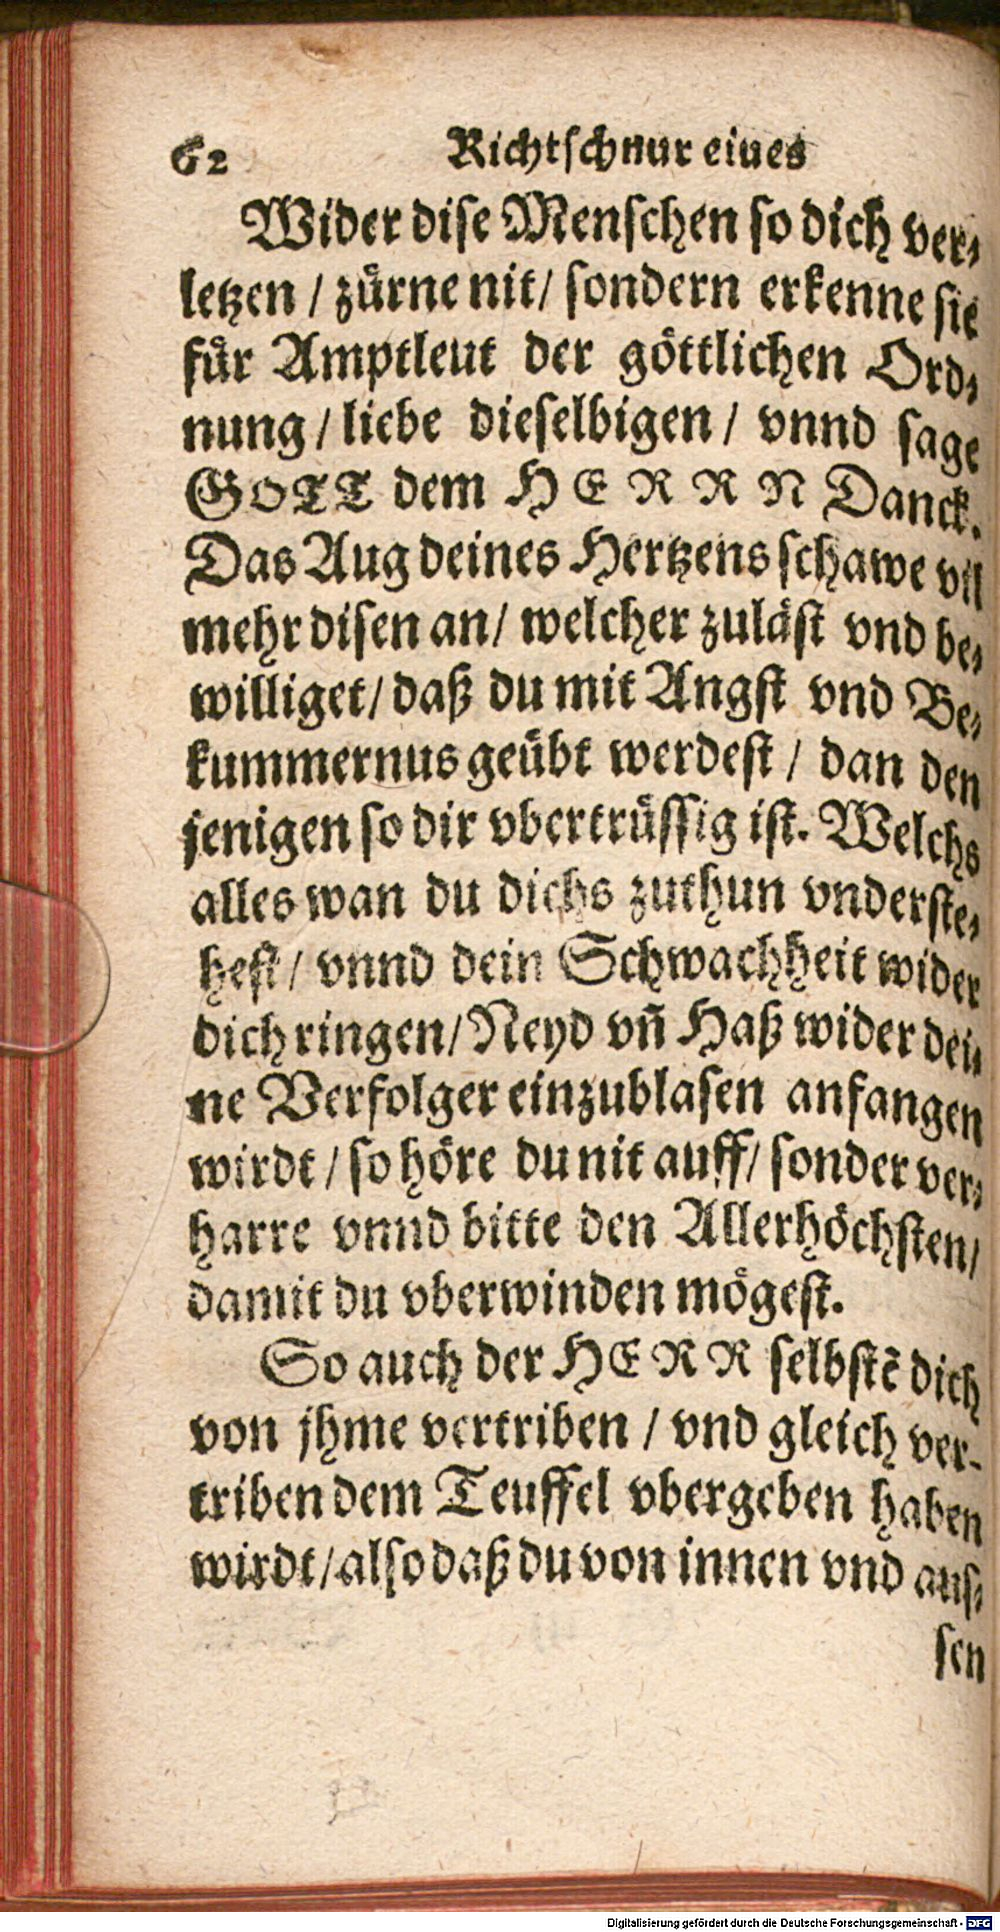 62 Richtschnur eines
Wider dise Menschen so dich ver⸗
letzen / zürne nit / sondern erkenne sie
für Amptleut der göttlichen Ord⸗
nung / liebe dieselbigen / vnnd sage
GOTT dem HERRN Danck.
Das Aug deines Hertzens schawe vil
mehr disen an / welcher zuläst vnd be⸗
williget / daß du mit Angst vnd Be⸗
kummernus geübt werdest / dan den
jenigen so dir vbertrüssig ist. Welchs
alles wan du dichs zuthun vnderste⸗
hest / vnnd dein Schwachheit wider
dich ringen / Neyd vñ Haß wider dei⸗
ne Verfolger einzublasen anfangen
wirdt / so höre du nit auff / sonder ver⸗
harre vnnd bitte den Allerhöchsten /
damit du vberwinden mögest.
So auch der HERR selbstẽ dich
von jhme vertriben / vnd gleich ver-
triben dem Teuffel vbergeben haben
wirdt / also daß du von innen vnd aus⸗
sen
Digitalisierung gefördert durch die Deutsche Forschungsgemeinschaft - DFG